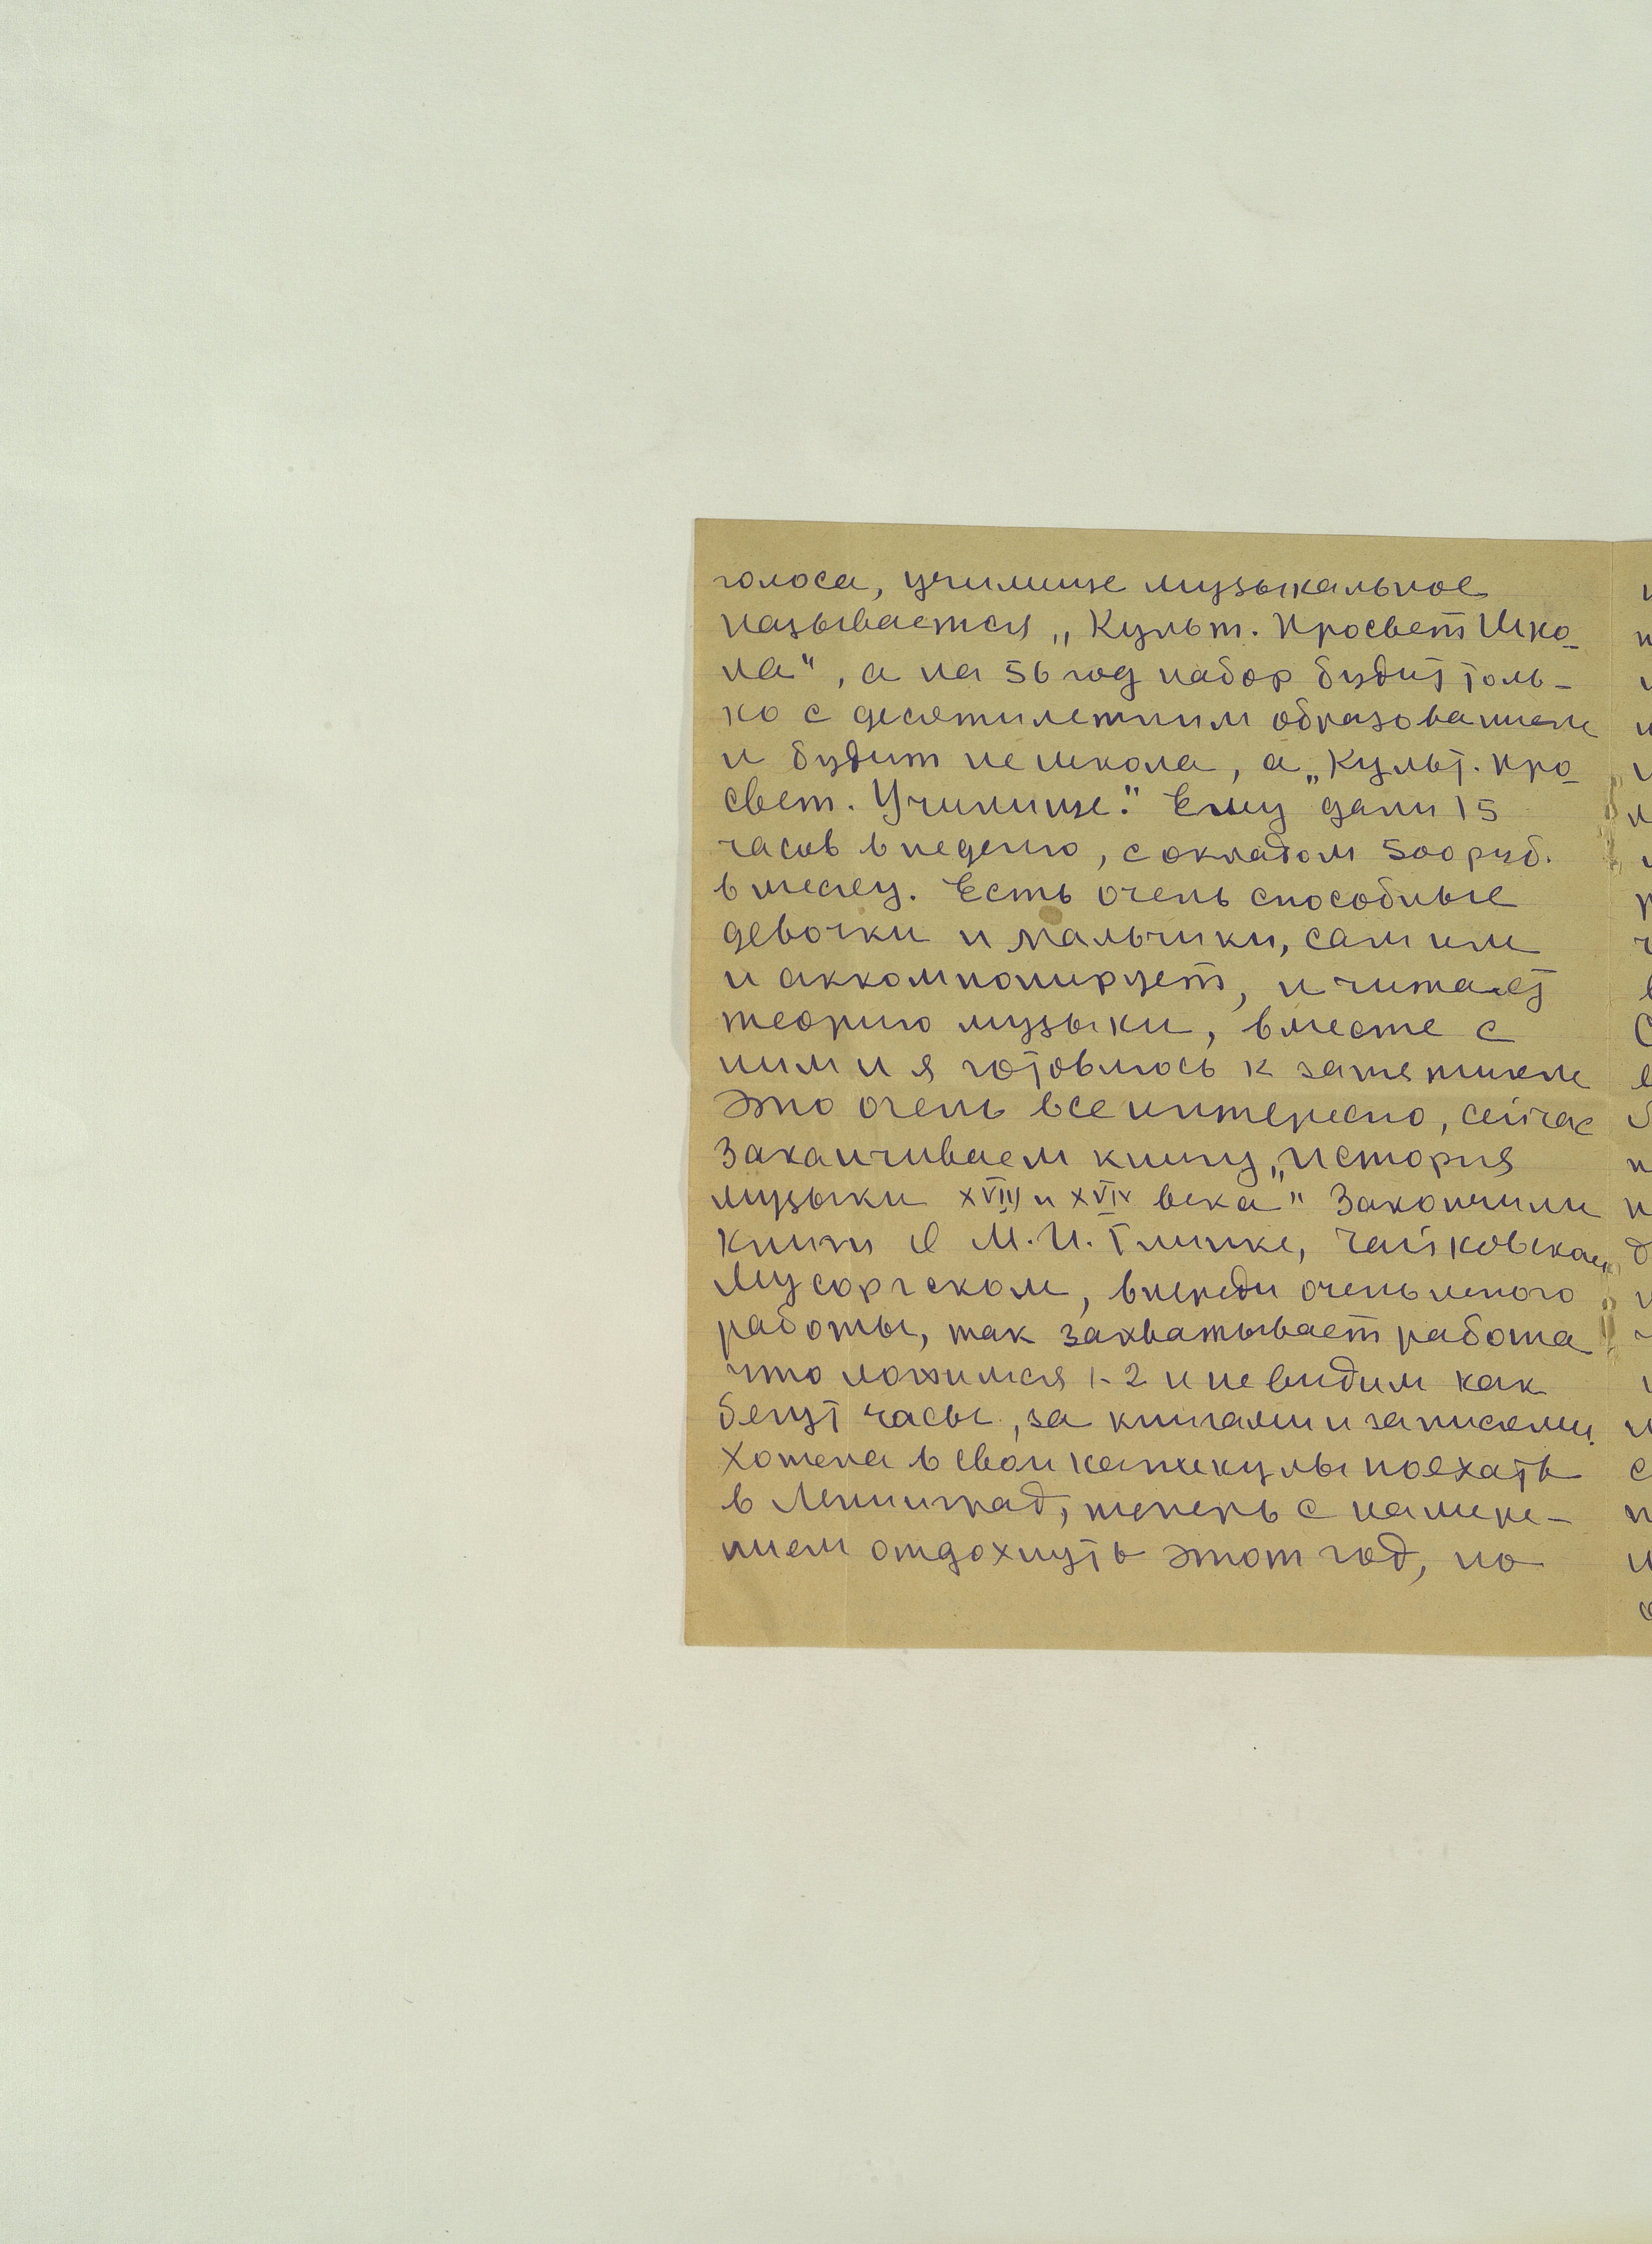 голоса, училище музыкальное
называется „Культ. Просвет Шко-
ла", а на 56 год набор будит толь-
ко с десятилетним образованием
и будит не школа, а „Культ. про-
свет. Училище." Ему дали 15
часов в неделю, с окладом 500 руб.
в месяц. Есть очень способные
девочки и мальчики, сам им
и аккомпонирует, и читает
теорию музыки, вместе с
ним и я готовлюсь к занятием
Это очень все интересно, сейчас
заканчиваем книгу „История
музыки XVIII и XVIV века" Закончили
книги О М.И. Глинке, Чайковском,
Мусоргском, впереди очень много
работы, так захватывает работа
что ложимся 1-2 и не видим как
бегут часы, за книгами и записями.
Хотела в свои каникулы поехать
в Ленинград, теперь с намере-
нием отдохнуть этот год, но